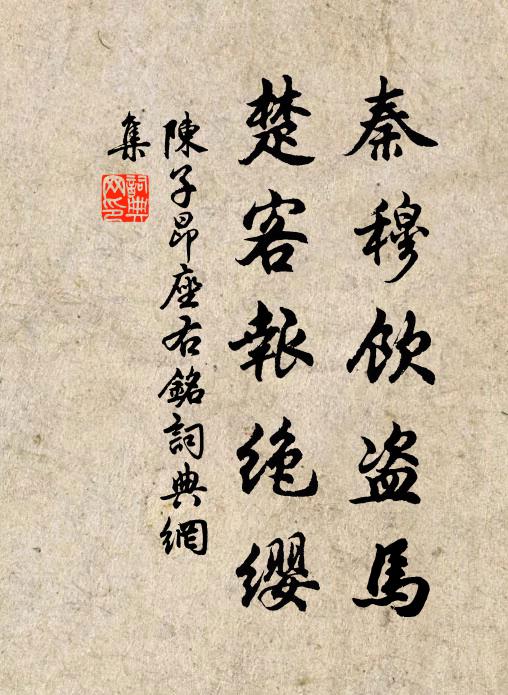 秦穆飲盗馬
楚客報絶纓
陳子昂座右銘詞典網
集
詞典
网印